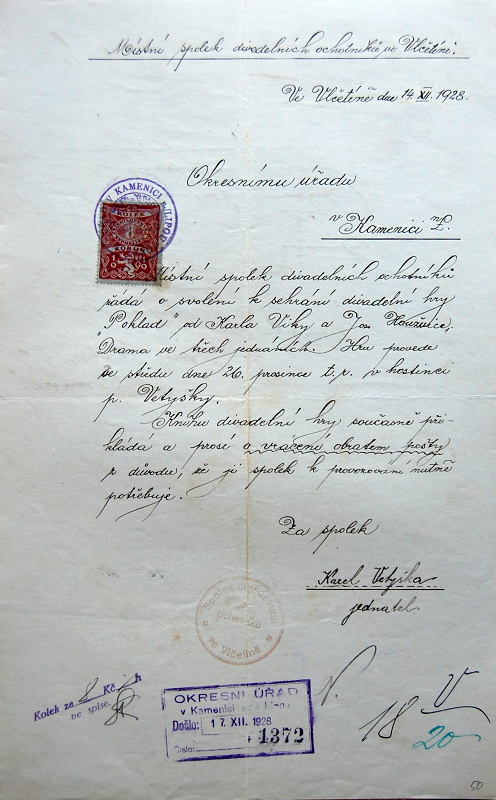 Místní spolek divadelních ochotníků ve Vlčetíně.
Ve Vlčetíně dne 14. XII. 1928.
Okresnímu úřadu
v Kamenici n/L.
V KAMENICI
KOLEK
8
KORUN
Místní spolek divadelních ochotníků
žádá o svolení k sehrání divadelní hry
"Poklad" od Karla Viky a Jos.
Drama ve třech jednáních. Hru provede
ve středu dne 26. prosince t. r. v hostinci
p. Vetyšky.
Knihu divadelní hry současně při-
kládá a prosí o vrácení obratem pošty
z důvodu, že ji spolek k provozování nutně
potřebuje.
Za spolek
Karel Vetyška
jednatel.
Spolek divadelních
ochotníků
ve Vlčetíně
Kolek za 8 Kč h
ve spise.
OKRESNÍ ÚŘAD
v Kamenici nad Lipou
Došlo: 17. XII. 1928
Číslo: 1372
18 V
20
50